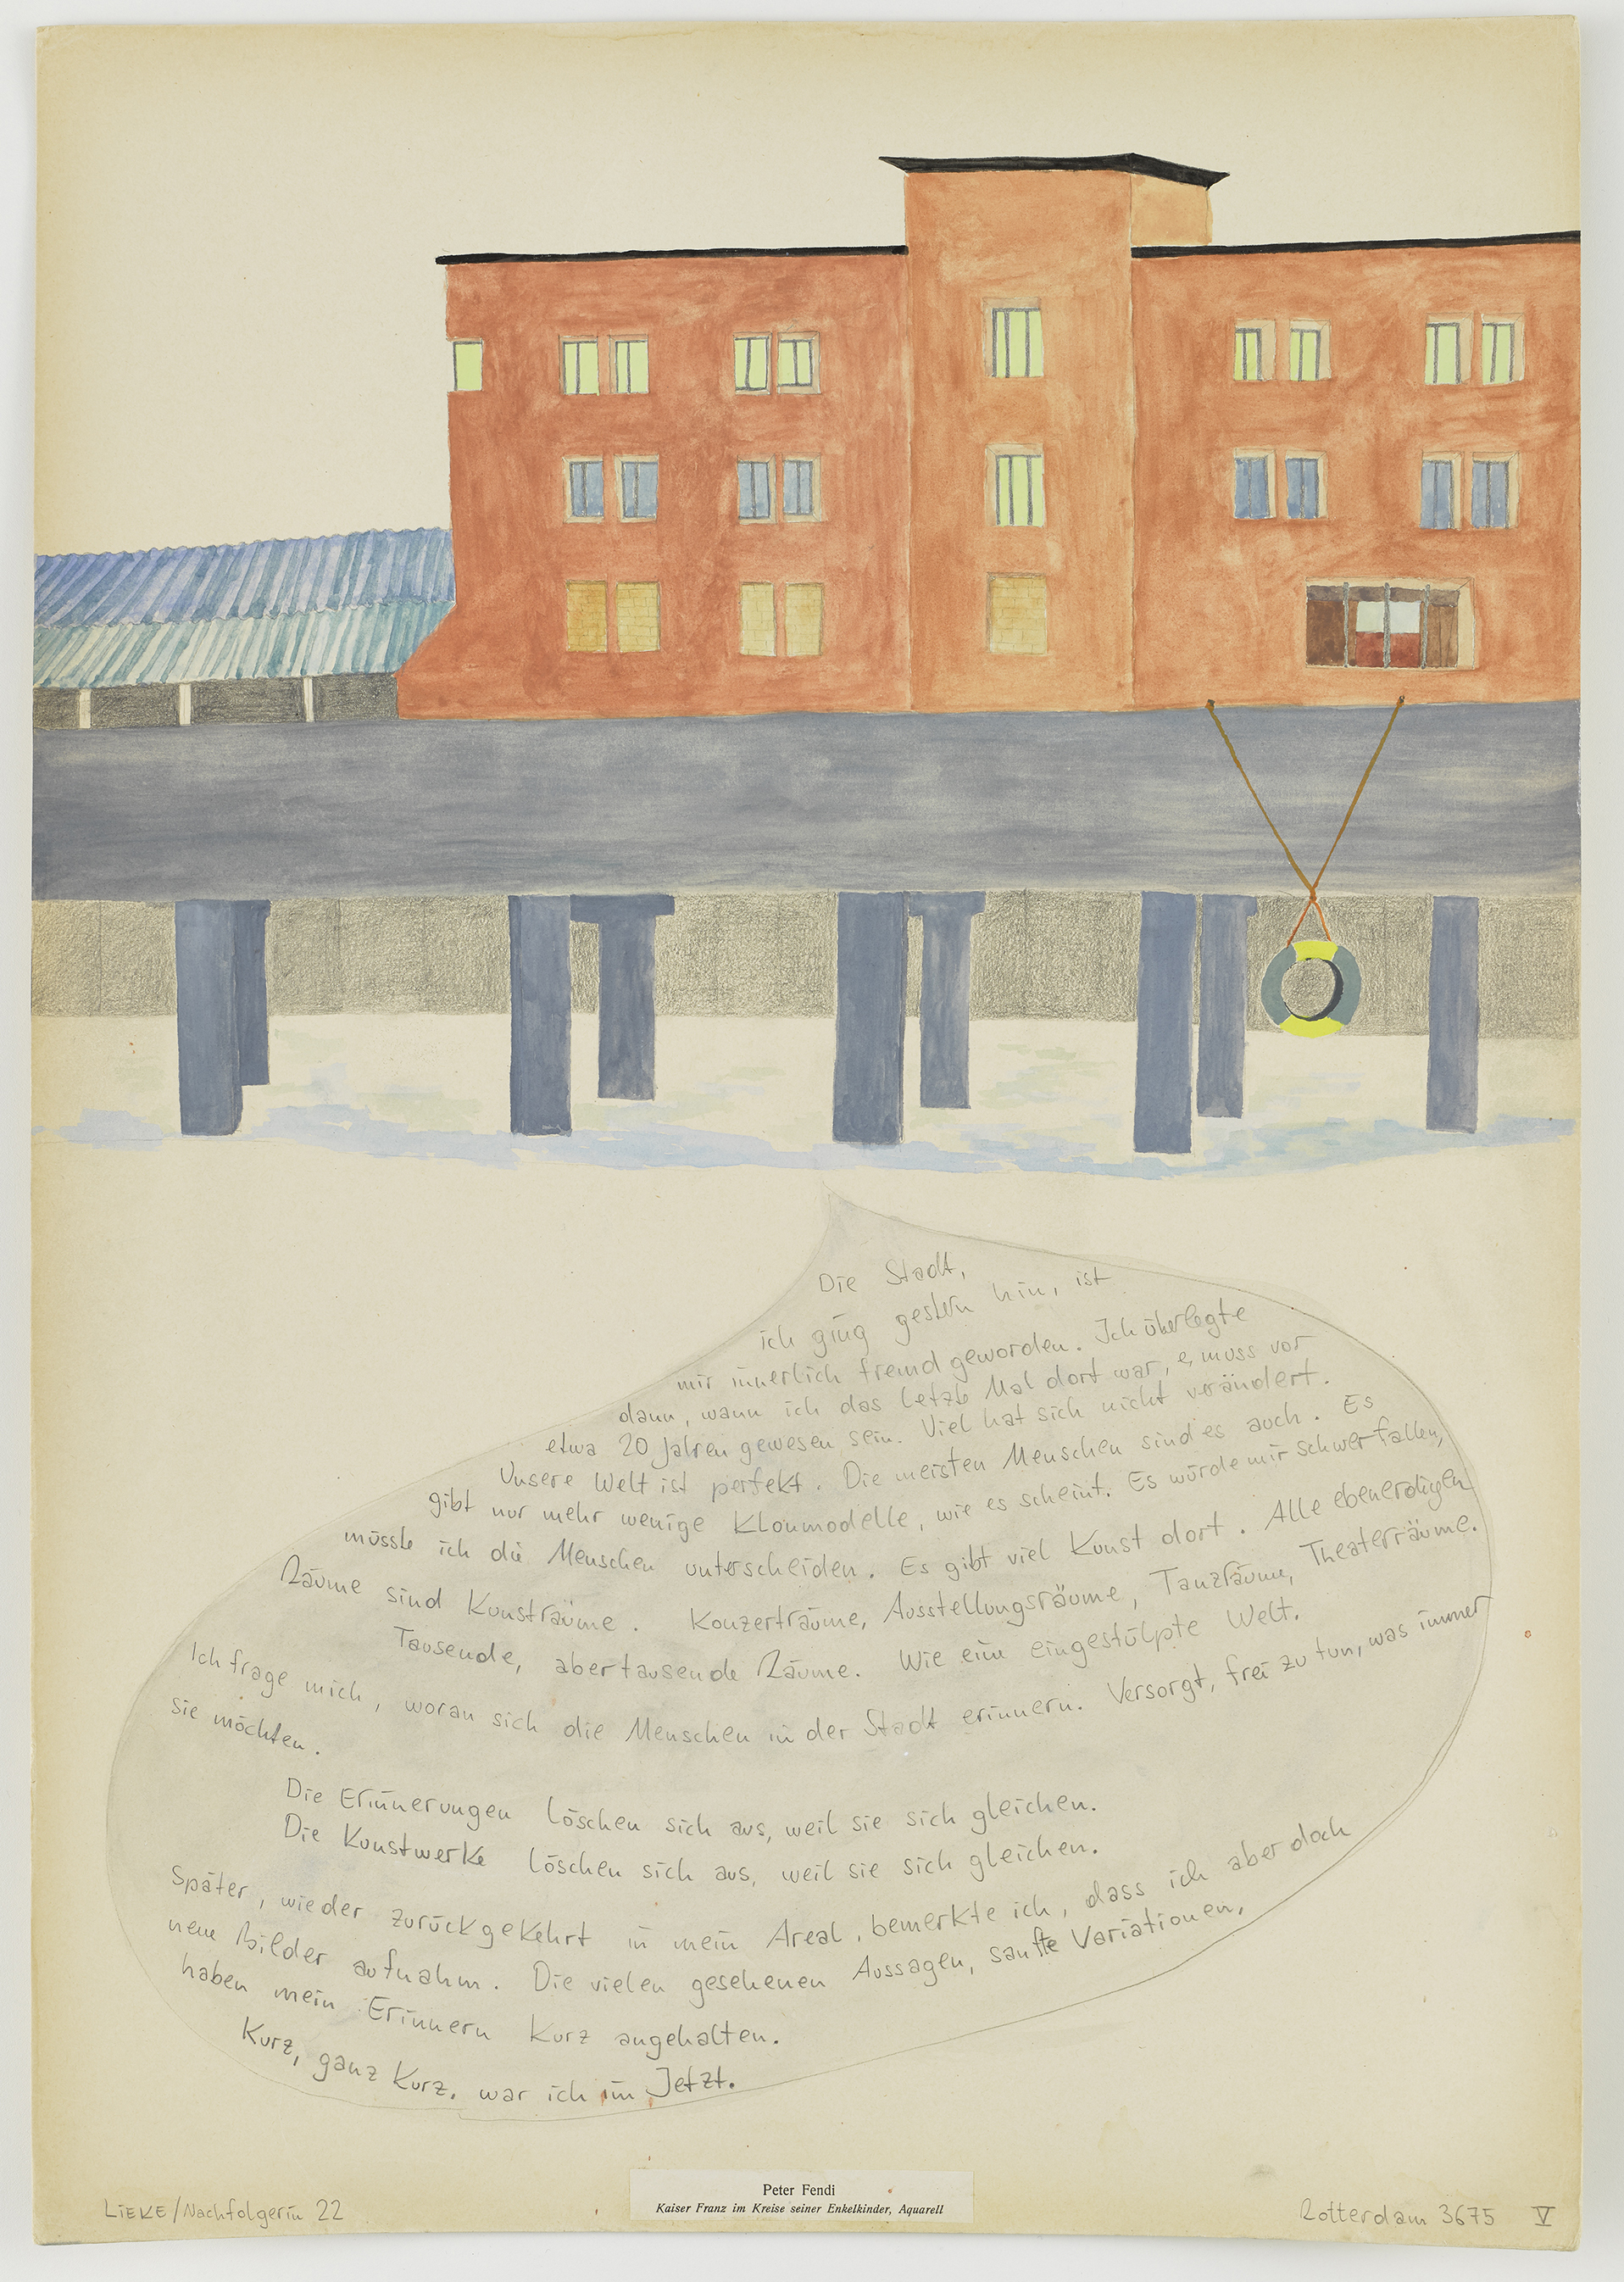 Die Stadt,
ich ging gestern hin, ist
mir innerlich fremd geworden. Ich überlegte
dann, wann ich das letzte Mal dort war, es muss vor
etwa 20 Jahren gewesen sein. Viel hat sich nicht verändert.
Unsere Welt ist perfekt. Die meisten Menschen sind es auch. Es
gibt nur mehr wenige Klonmodelle, wie es scheint. Es würde mir schwerfallen,
müsste ich die Menschen unterscheiden. Es gibt viel Kunst dort. Alle ebenerdigen
Räume sind Kunsträume. Konzerträume, Ausstellungsräume, Tanzräume, Theaterräume.
Tausende, abertausende Räume. Wie eine eingestülpte Welt.
Ich frage mich, woran sich die Menschen in der Stadt erinnern. Versorgt, frei zu tun, was immer
sie möchten.
Die Erinnerungen löschen sich aus, weil sie sich gleichen.
Die Kunstwerke löschen sich aus, weil sie sich gleichen.
Später, wieder zurückgekehrt in mein Areal, bemerkte ich, dass ich aber doch
neue Bilder aufnahm. Die vielen gesehenen Aussagen, sanfte Variationen,
haben mein Erinnern kurz angehalten.
Kurz, ganz kurz, war ich im Jetzt.
Peter Fendi
Kaiser Franz im Kreise seiner Enkelkinder, Aquarell
LIEKE/Nachfolgerin 22
Rotterdam 3675 V